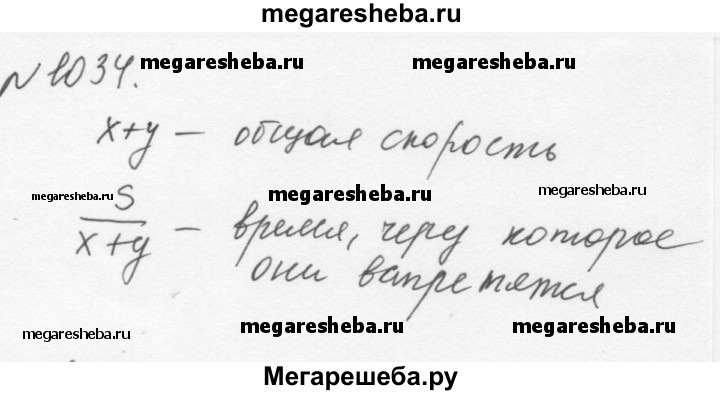 megaresheba.ru
№1034.
megaresheba.ru megaresheba.ru
x+y — общая скорость
megaresheba.ru megaresheba.ru megaresheba.ru
S
x+y — время, через которое
они встретятся
megaresheba.ru megaresheba.ru megaresheba.ru
Мегарешеба.ру